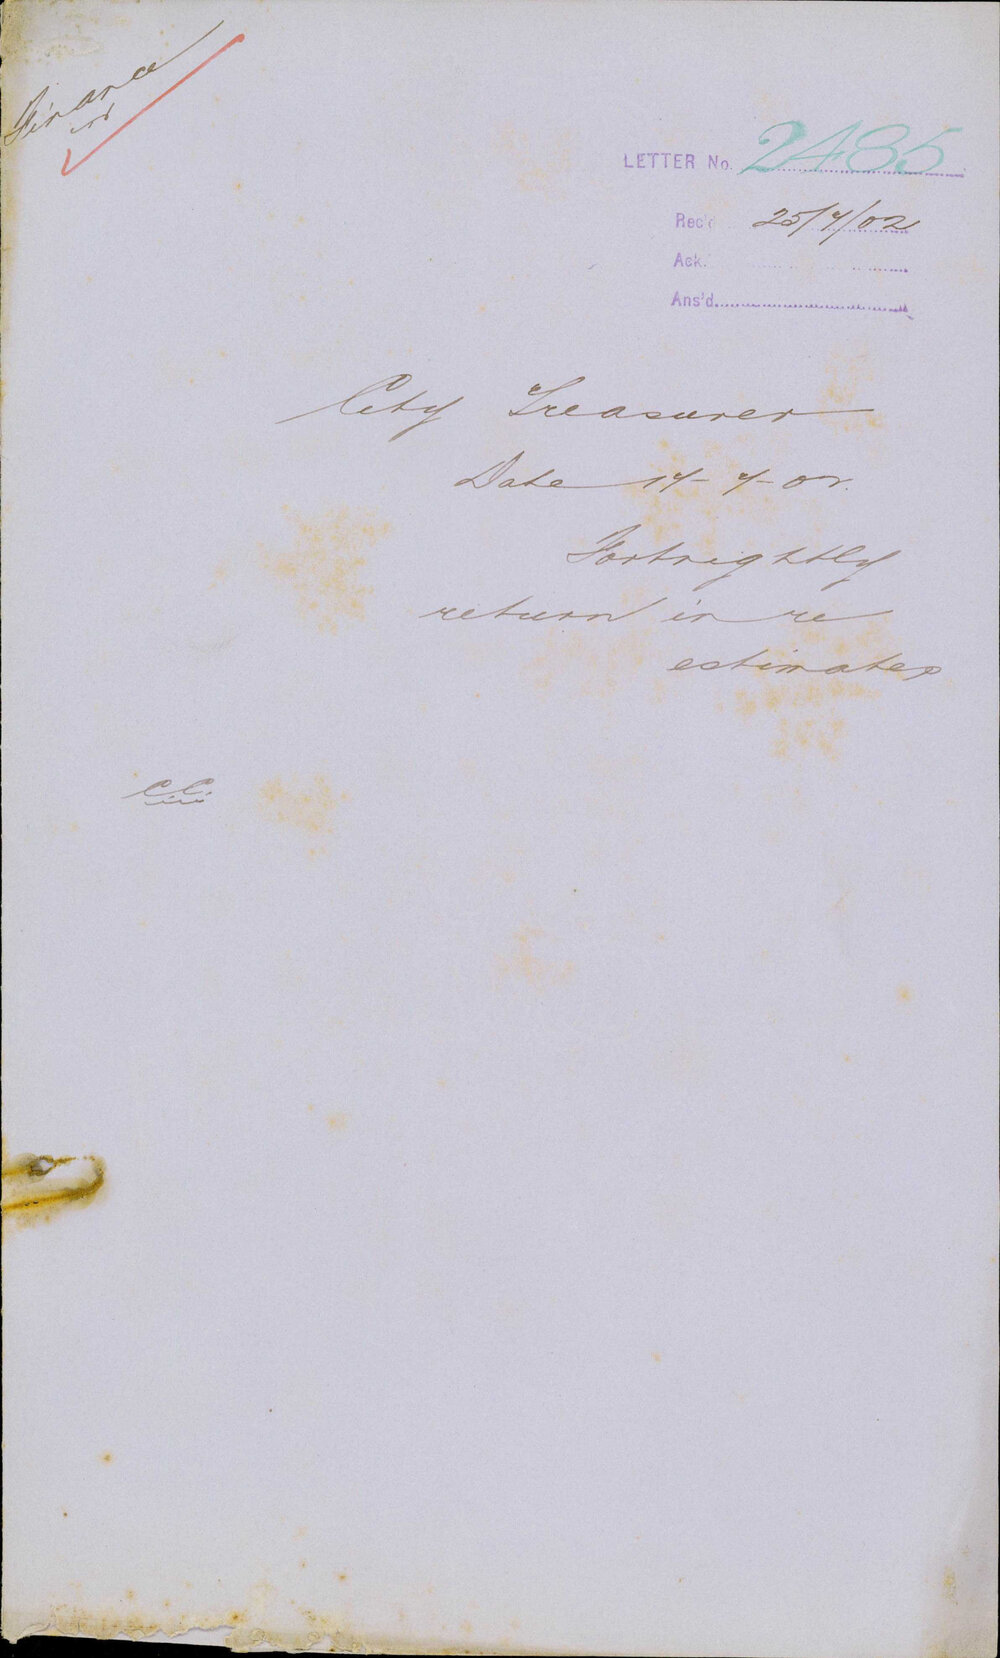 Finance
LETTER No. 2485
Rec'd 25/7/02
Ack.
Ans'd
City Treasurer
Date 17-7-02.
Fortnightly
return in re
estimates
C.C.